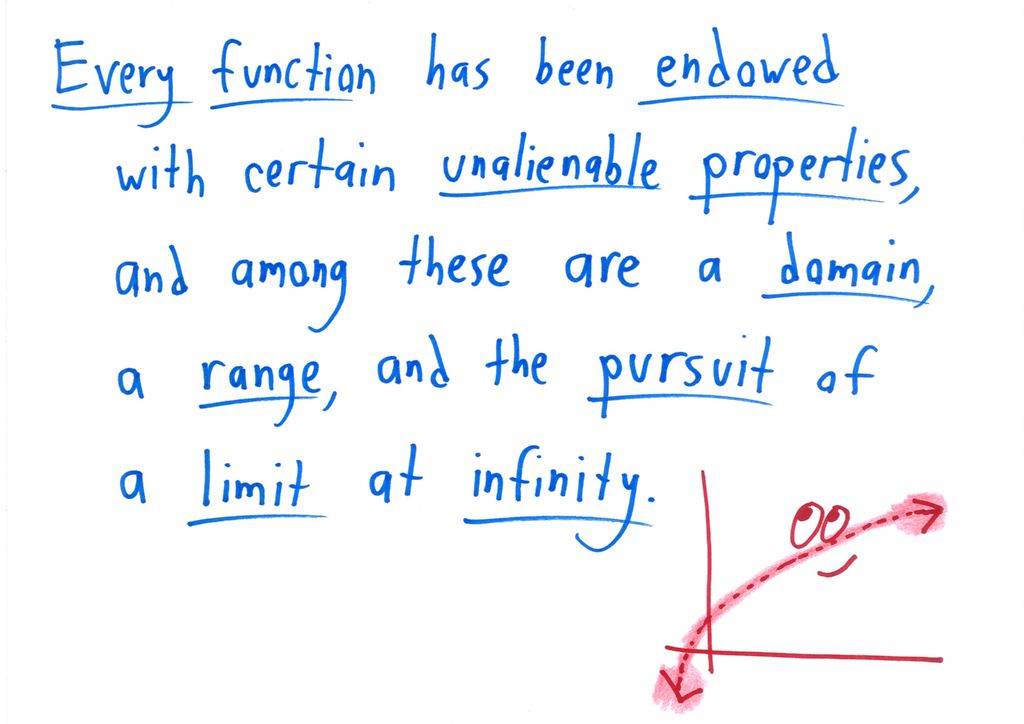 Every function has been endowed
with certain unalienable properties,
and among these are a domain,
a range, and the pursuit of
a limit at infinity.